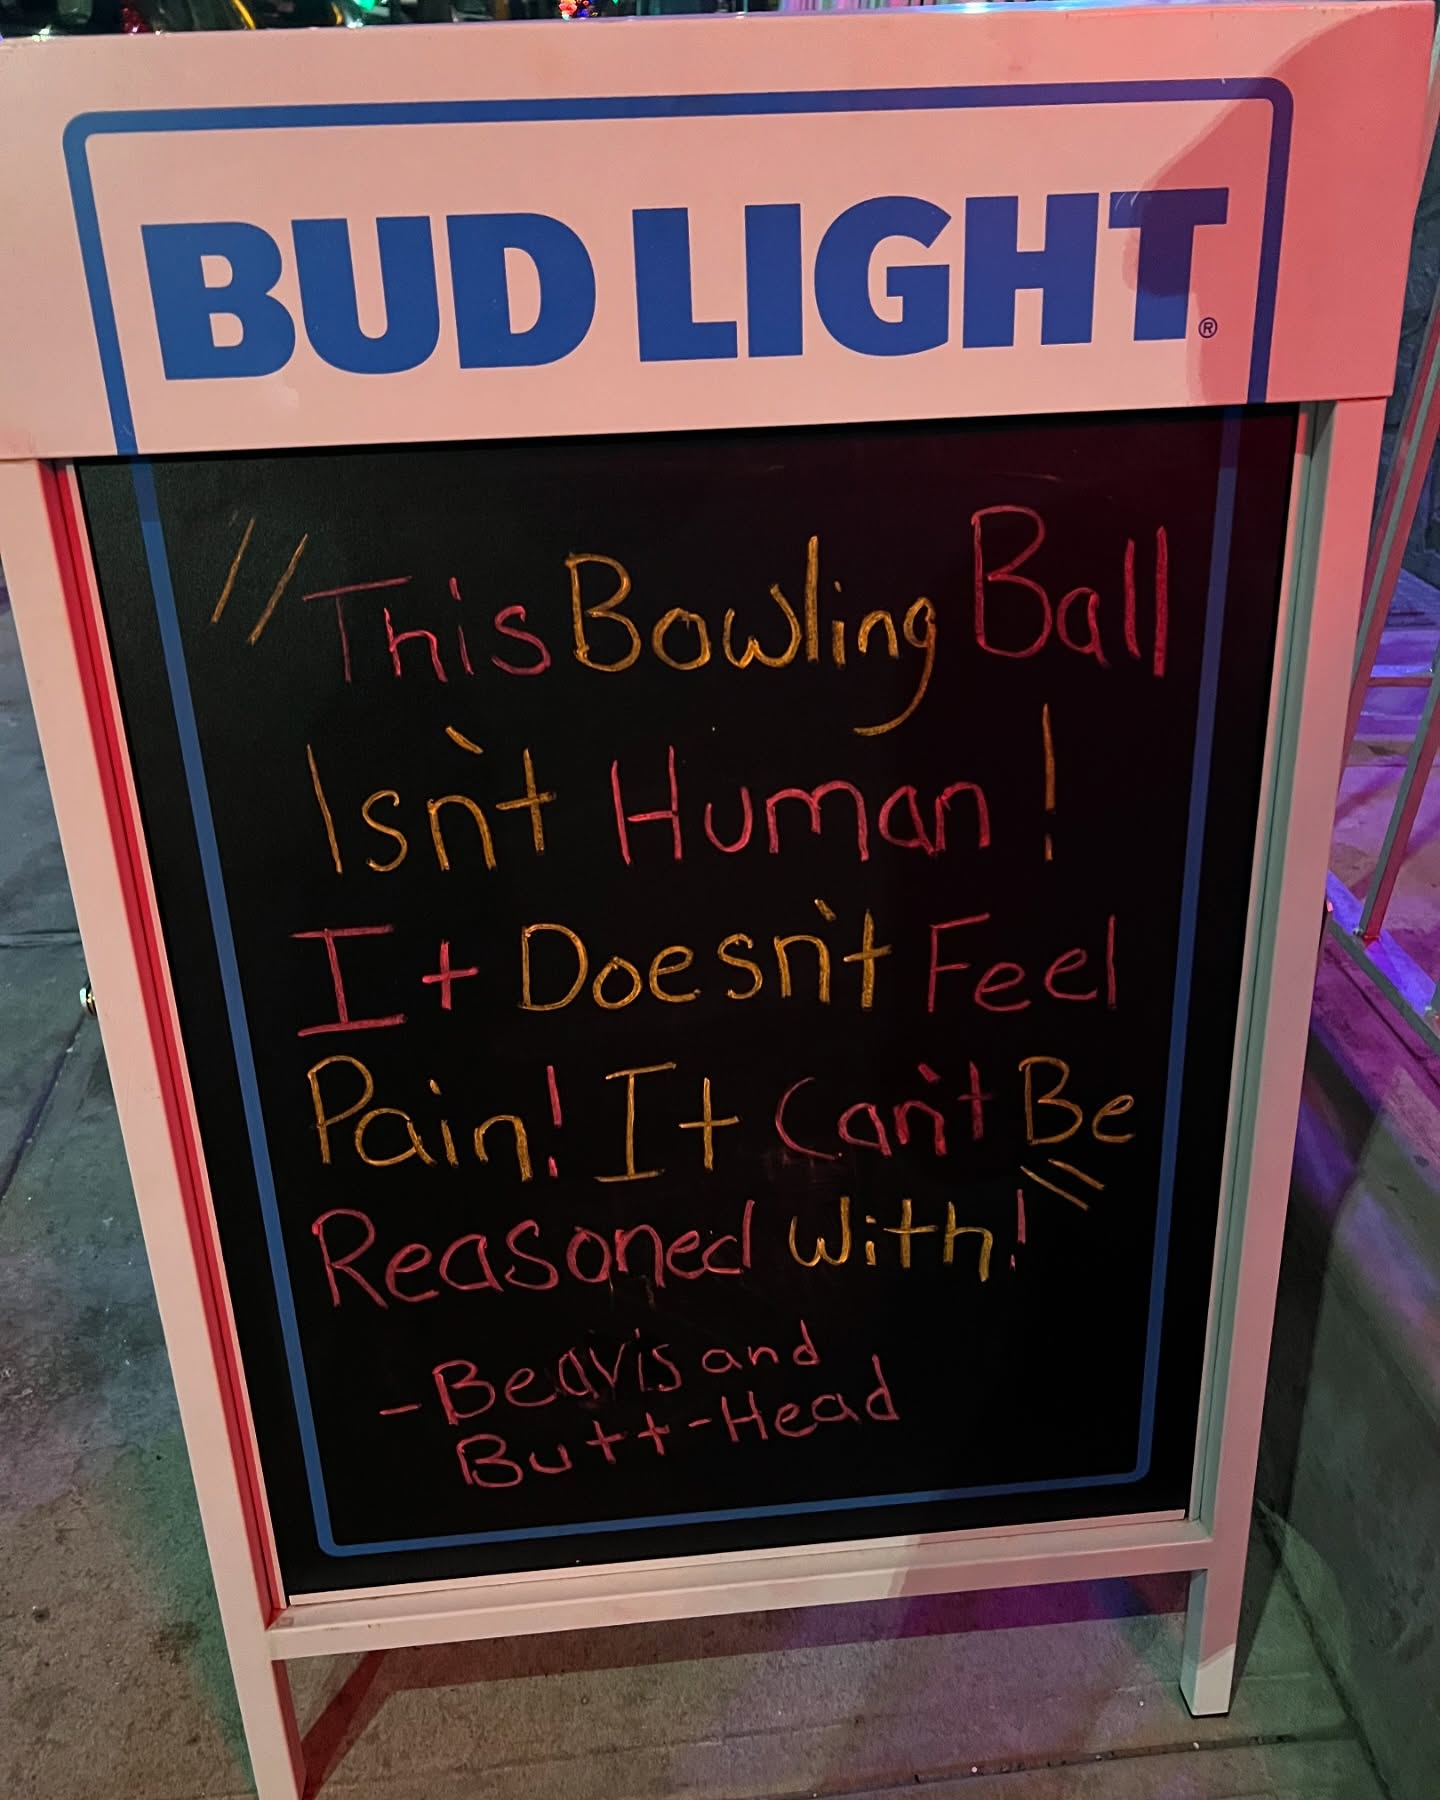 BUD LIGHT®
"This Bowling Ball
Isn't Human!
It Doesn't Feel
Pain! It Can't Be
Reasoned With!"
-Beavis and
Butt-Head